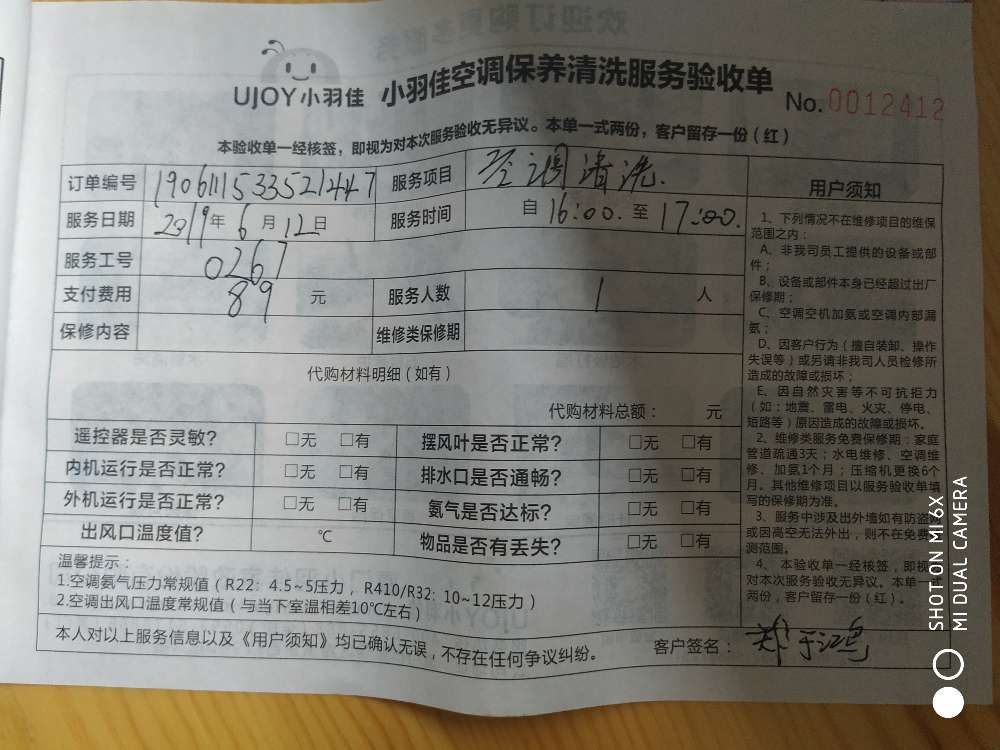 UJOY小羽佳 小羽佳空调保养清洗服务验收单
No.0012412
本验收单一经核签，即视为对本次服务验收无异议。本单一式两份，客户留存一份（红）
订单编号 190611153352144７ 服务项目 空调清洗.
服务日期 2019年6月12日 服务时间 自16:00.至17:00.
服务工号 0267
支付费用 89 元 服务人数 1 人
保修内容 维修类保修期
代购材料明细（如有）
代购材料总额： 元
遥控器是否灵敏? □无 □有 摆风叶是否正常? □无 □有
内机运行是否正常? □无 □有 排水口是否通畅? □无 □有
外机运行是否正常? □无 □有 氨气是否达标? □无 □有
出风口温度值? ℃ 物品是否有丢失? □无 □有
温馨提示：
1.空调氨气压力常规值（R22: 4.5~5压力， R410/R32: 10~12压力）
2.空调出风口温度常规值（与当下室温相差10℃左右）
本人对以上服务信息以及《用户须知》均已确认无误，不存在任何争议纠纷。 客户签名：
用户须知
1、下列情况不在维修项目的维保
范围之内：
A、非我司员工提供的设备或部
件；
B、设备或部件本身已经超过出厂
保修期；
C、空调空机加氨或空调内部漏
氨；
D、因客户行为（擅自装卸、操作
失误等）或另请非我司人员检修所
造成的故障或损坏；
E、因自然灾害等不可抗拒力
（如：地震、雷电、火灾、停电、
短路等）原因造成的故障或损坏。
2、维修类服务免费保修期：家庭
管道疏通3天；水电维修、空调维
修、加氨1个月；压缩机更换6个
月。其他维修项目以服务验收单填
写的保修期为准。
3、服务中涉及出外墙如有防盗网
或因高空无法外出，则不在免费
测范围。
4、本验收单一经核签，即视
对本次服务验收无异议。本单一
两份，客户留存一份（红）。
SHOT ON MI 6X
MI DUAL CAMERA